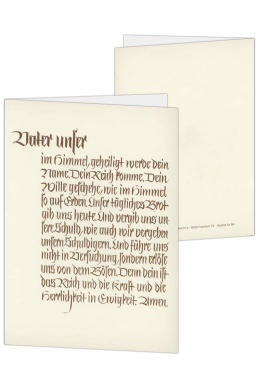 Vater unser
im Himmel, geheiligt werde dein
Name. Dein Reich komme. Dein
Wille geschehe, wie im Himmel
so auf Erden. Unser tägliches Brot
gib uns heute. Und vergib uns un-
sere Schuld, wie auch wir vergeben
unsern Schuldigern. Und führe uns
nicht in Versuchung, sondern erlöse
uns von dem Bösen. Denn dein ist
das Reich und die Kraft und die
Herrlichkeit in Ewigkeit. Amen.